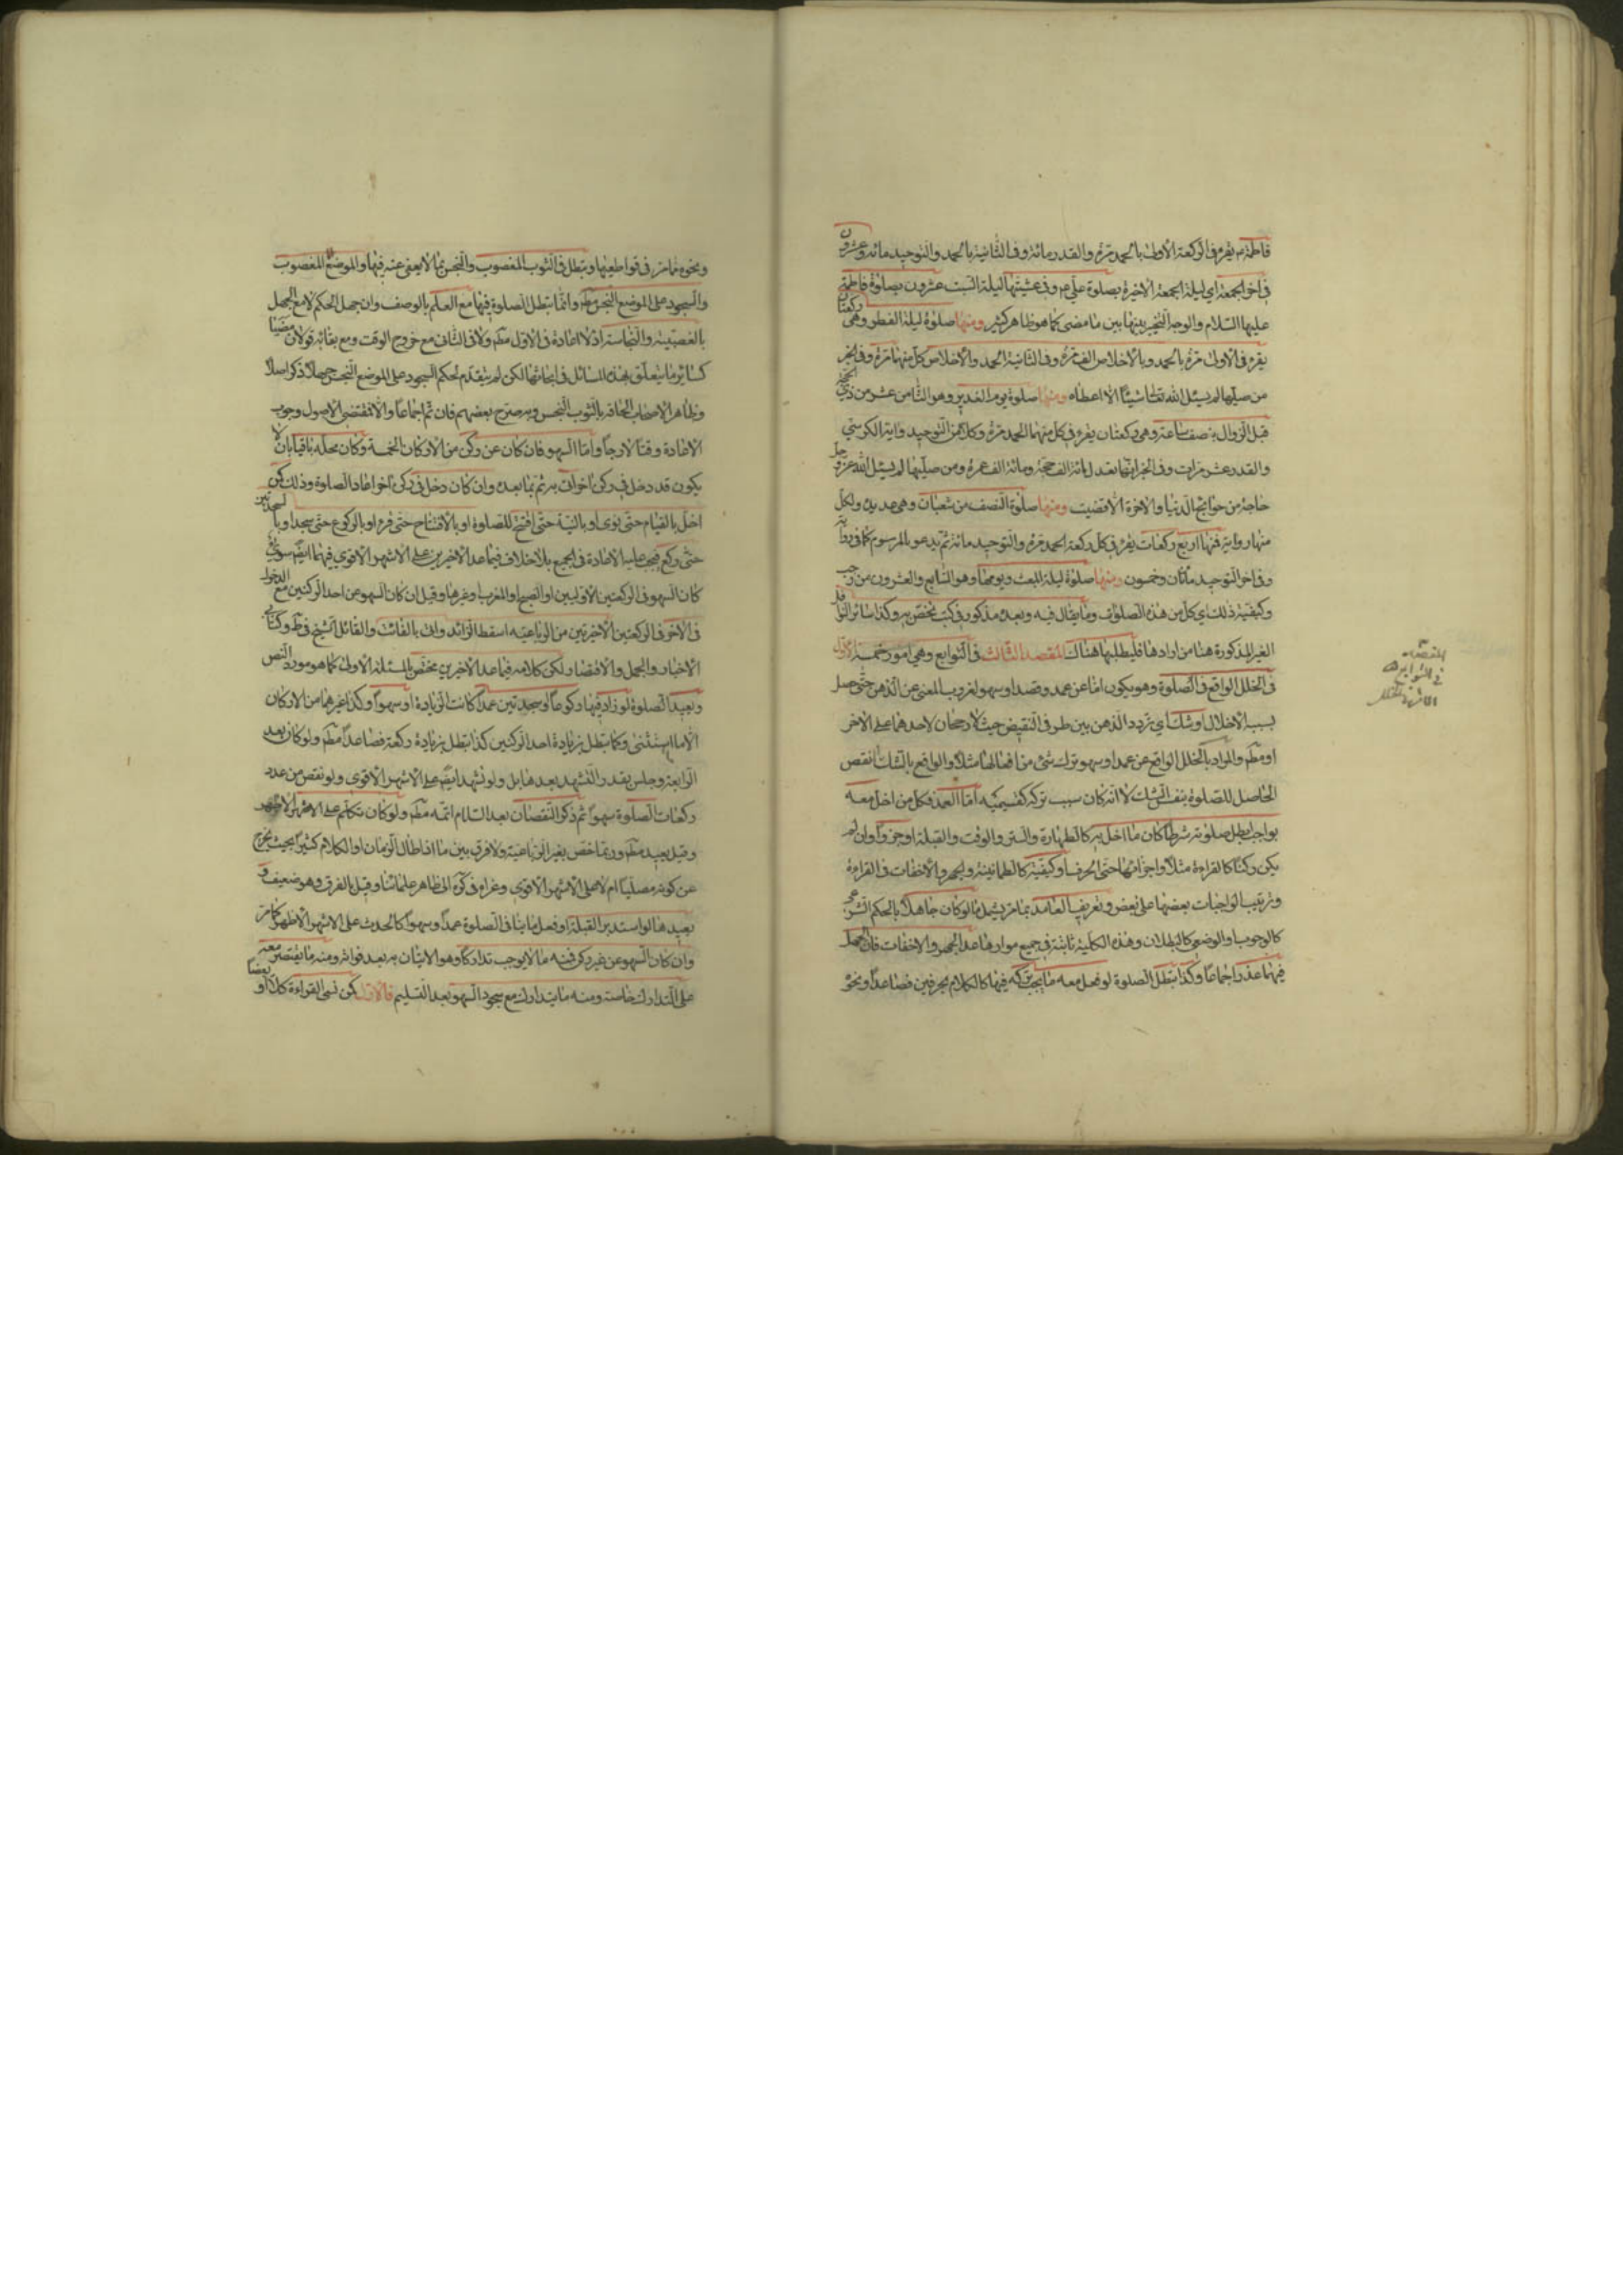 فاطمة م يقرء فى الركعة الاولى بالحمد مرة والقدر مائة وفى الثانية بالحمد والتوحيد مائة وعشرون
فى اخر الجمعة اى ليلة الجمعة الاخيرة بصلوة على م وفى عشيتها ليلة السبت عشرون بصلوة فاطمة
عليها السلام والوجه التخيير بينها بين ما مضى كما هو ظاهر كثير ومنها صلوة ليلة الفطر وهى ركعتان
يقرء فى الاولى مرة بالحمد وبالاخلاص الف مرة وفى الثانية الحمد والاخلاص كل منهما مرة وفى الخبر
من صلّيها لم يسئل الله تعالى شيئا الا اعطاه ومنها صلوة يوم الغدير وهو الثامن عشر من ذى الحجة
قبل الزوال بنصف ساعة وهى ركعتان يقرء فى كل منهما الحمد مرة وكلا من التوحيد واية الكرسى
والقدر عشر مرات وفى الخبر انها تعدل مائة الف حجة ومائة الف عمرة ومن صلّيها لم يسئل الله عز وجل
حاجة من حوائج الدنيا والاخرة الا قضيت ومنها صلوة النصف من شعبان وهى عديدة ولكل
منها رواية فمنها اربع ركعات يقرء فى كل ركعة الحمد مرة والتوحيد مائة ثم يدعو بالمرسوم كما فى رواية
وفى اخر التوحيد مأتان وخمسون ومنها صلوة ليلة المبعث ويومها وهو السابع والعشرون من رجب
وكيفية ذلك اى كل من هذه الصلوات وما يقال فيه وبعده مذكور فى كتب تختص به وكذا سائر النوافل
الغير المذكورة هنا من ارادها فليطلبها هناك المقصد الثالث فى التوابع وهى امور خمسة الاول
فى الخلل الواقع فى الصلوة وهو يكون اما عن عمد وقصد او سهو لغروب المعنى عن الذهن حتى حصل
بسببه الاخلال او شك اى تردد الذهن بين طرفى النقيض حيث لا رجحان لاحدهما على الاخر
او مطم والمراد بالخلل الواقع عن عمد او سهو ترك شئ من افعالها مثلا والواقع بالشك النقص
الحاصل للصلوة بنفس الشك لا انه كان سبب تركه كقسيميه اما العمد فكل من اخل معه
بواجب بطل صلوته شرطا كان ما اخل به كالطهارة والستر والوقت والقبلة او جزءا وان لم
يكن ركنا كالقراءة مثلا واجزائها حتى الحرف او كيفية كالطمانينة والجهر والاخفات فى القراءة
وترتيب الواجبات بعضها على بعض وتعريف العامد بما مر يشمل ما لو كان جاهلا بالحكم الشرعى
كالوجوب او الوضعى كالبطلان وهذه الكلية ثابتة فى جميع مواردها عدا الجهر والاخفات فان الجهل
فيهما عذر اجماعا وكذا تبطل الصلوة لو فعل معه ما يجب تركه فيها كالكلام بحرفين فصاعدا ونحو
المقصد ٣
فى التوابع
ونحوه مما مر فى قواطعها وتبطل فى الثوب المغصوب والنجس بما لا يعفى عنه فيها والموضع المغصوب
والسجود على الموضع النجس مطم وانما تبطل الصلوة فيها مع العلم بالوصف وان جهل الحكم لا مع الجهل
بالغصبية والنجاسة اذ لا اعادة فى الاول مطم ولا فى الثانى مع خروج الوقت ومع بقائه قولان مضيا
كسائر ما يتعلق بهذه المسائل فى ابحاثها لكن لم يتقدم لحكم السجود على الموضع النجس جهلا ذكر اصلا
وظاهر الاصحاب الحاقه بالثوب النجس وبه صرح بعضهم فان تم اجماعا والا فمقتضى الاصول وجوب
الاعادة وقتا لا خارجا واما السهو فان كان عن ركن من الاركان الخمسة وكان محله باقيا بان لا
يكون قد دخل فى ركن اخر اتى به ثم بما بعده وان كان دخل فى ركن اخر اعاد الصلوة وذلك كمن
اخل بالقيام حتى نوى او بالنية حتى افتتح للصلوة او بالافتتاح حتى قرء او بالركوع حتى سجد او بالسجدتين
حتى ركع فيجب عليه الاعادة فى الجميع بلا خلاف فيما عدا الاخيرين على الاشهر الاقوى فيهما ايضا سواء
كان السهو فى الركعتين الاوليين او الصبح او المغرب او غيرها وقيل ان كان السهو عن احد الركنين مع الدخول
فى الاخر فى الركعتين الاخيرتين من الرباعية اسقط الزائد واتى بالفائت والقائل الشيخ فى ط وكتابى
الاخبار والجمل والاقتصاد ولكن كلامه فيما عدا الاخيرين مختص بالمسئلة الاولى كما هو مورد النص
ويعيد الصلوة لو زاد فيها ركوعا او سجدتين عمدا كانت الزيادة او سهوا وكذا غيرهما من الاركان
الا ما استثنى وكما تبطل بزيادة احد الركنين كذا تبطل بزيادة ركعة فصاعدا مطم ولو كان بعد
الرابعة وجلس بقدر التشهد بعدها بل ولو تشهد ايضا على الاشهر الاقوى ولو نقص من عدد
ركعات الصلوة سهوا ثم ذكر النقصان بعد السلام اتمه مطم ولو كان تكلم على الاشهر الاظهر
وقيل يعيد مطم وربما خص بغير الرباعية ولا فرق بين ما اذا طال الزمان او الكلام كثيرا بحيث يخرج
عن كونه مصليا ام لا على الاشهر الاقوى وعزاه فى كره الى ظاهر علمائنا وقيل بالفرق وهو ضعيف و
يعيدها لو استدبر القبلة او فعل ما ينافى الصلوة عمدا وسهوا كالحدث على الاشهر الاظهر كما مر
وان كان السهو عن غير ركن فمنه ما لا يوجب تداركا وهو الاتيان به بعد فواته ومنه ما يقتصر معه
على التدارك خاصة ومنه ما يتدارك مع سجود السهو بعد التسليم فالاول كمن نسى القراءة كلا او بعضا